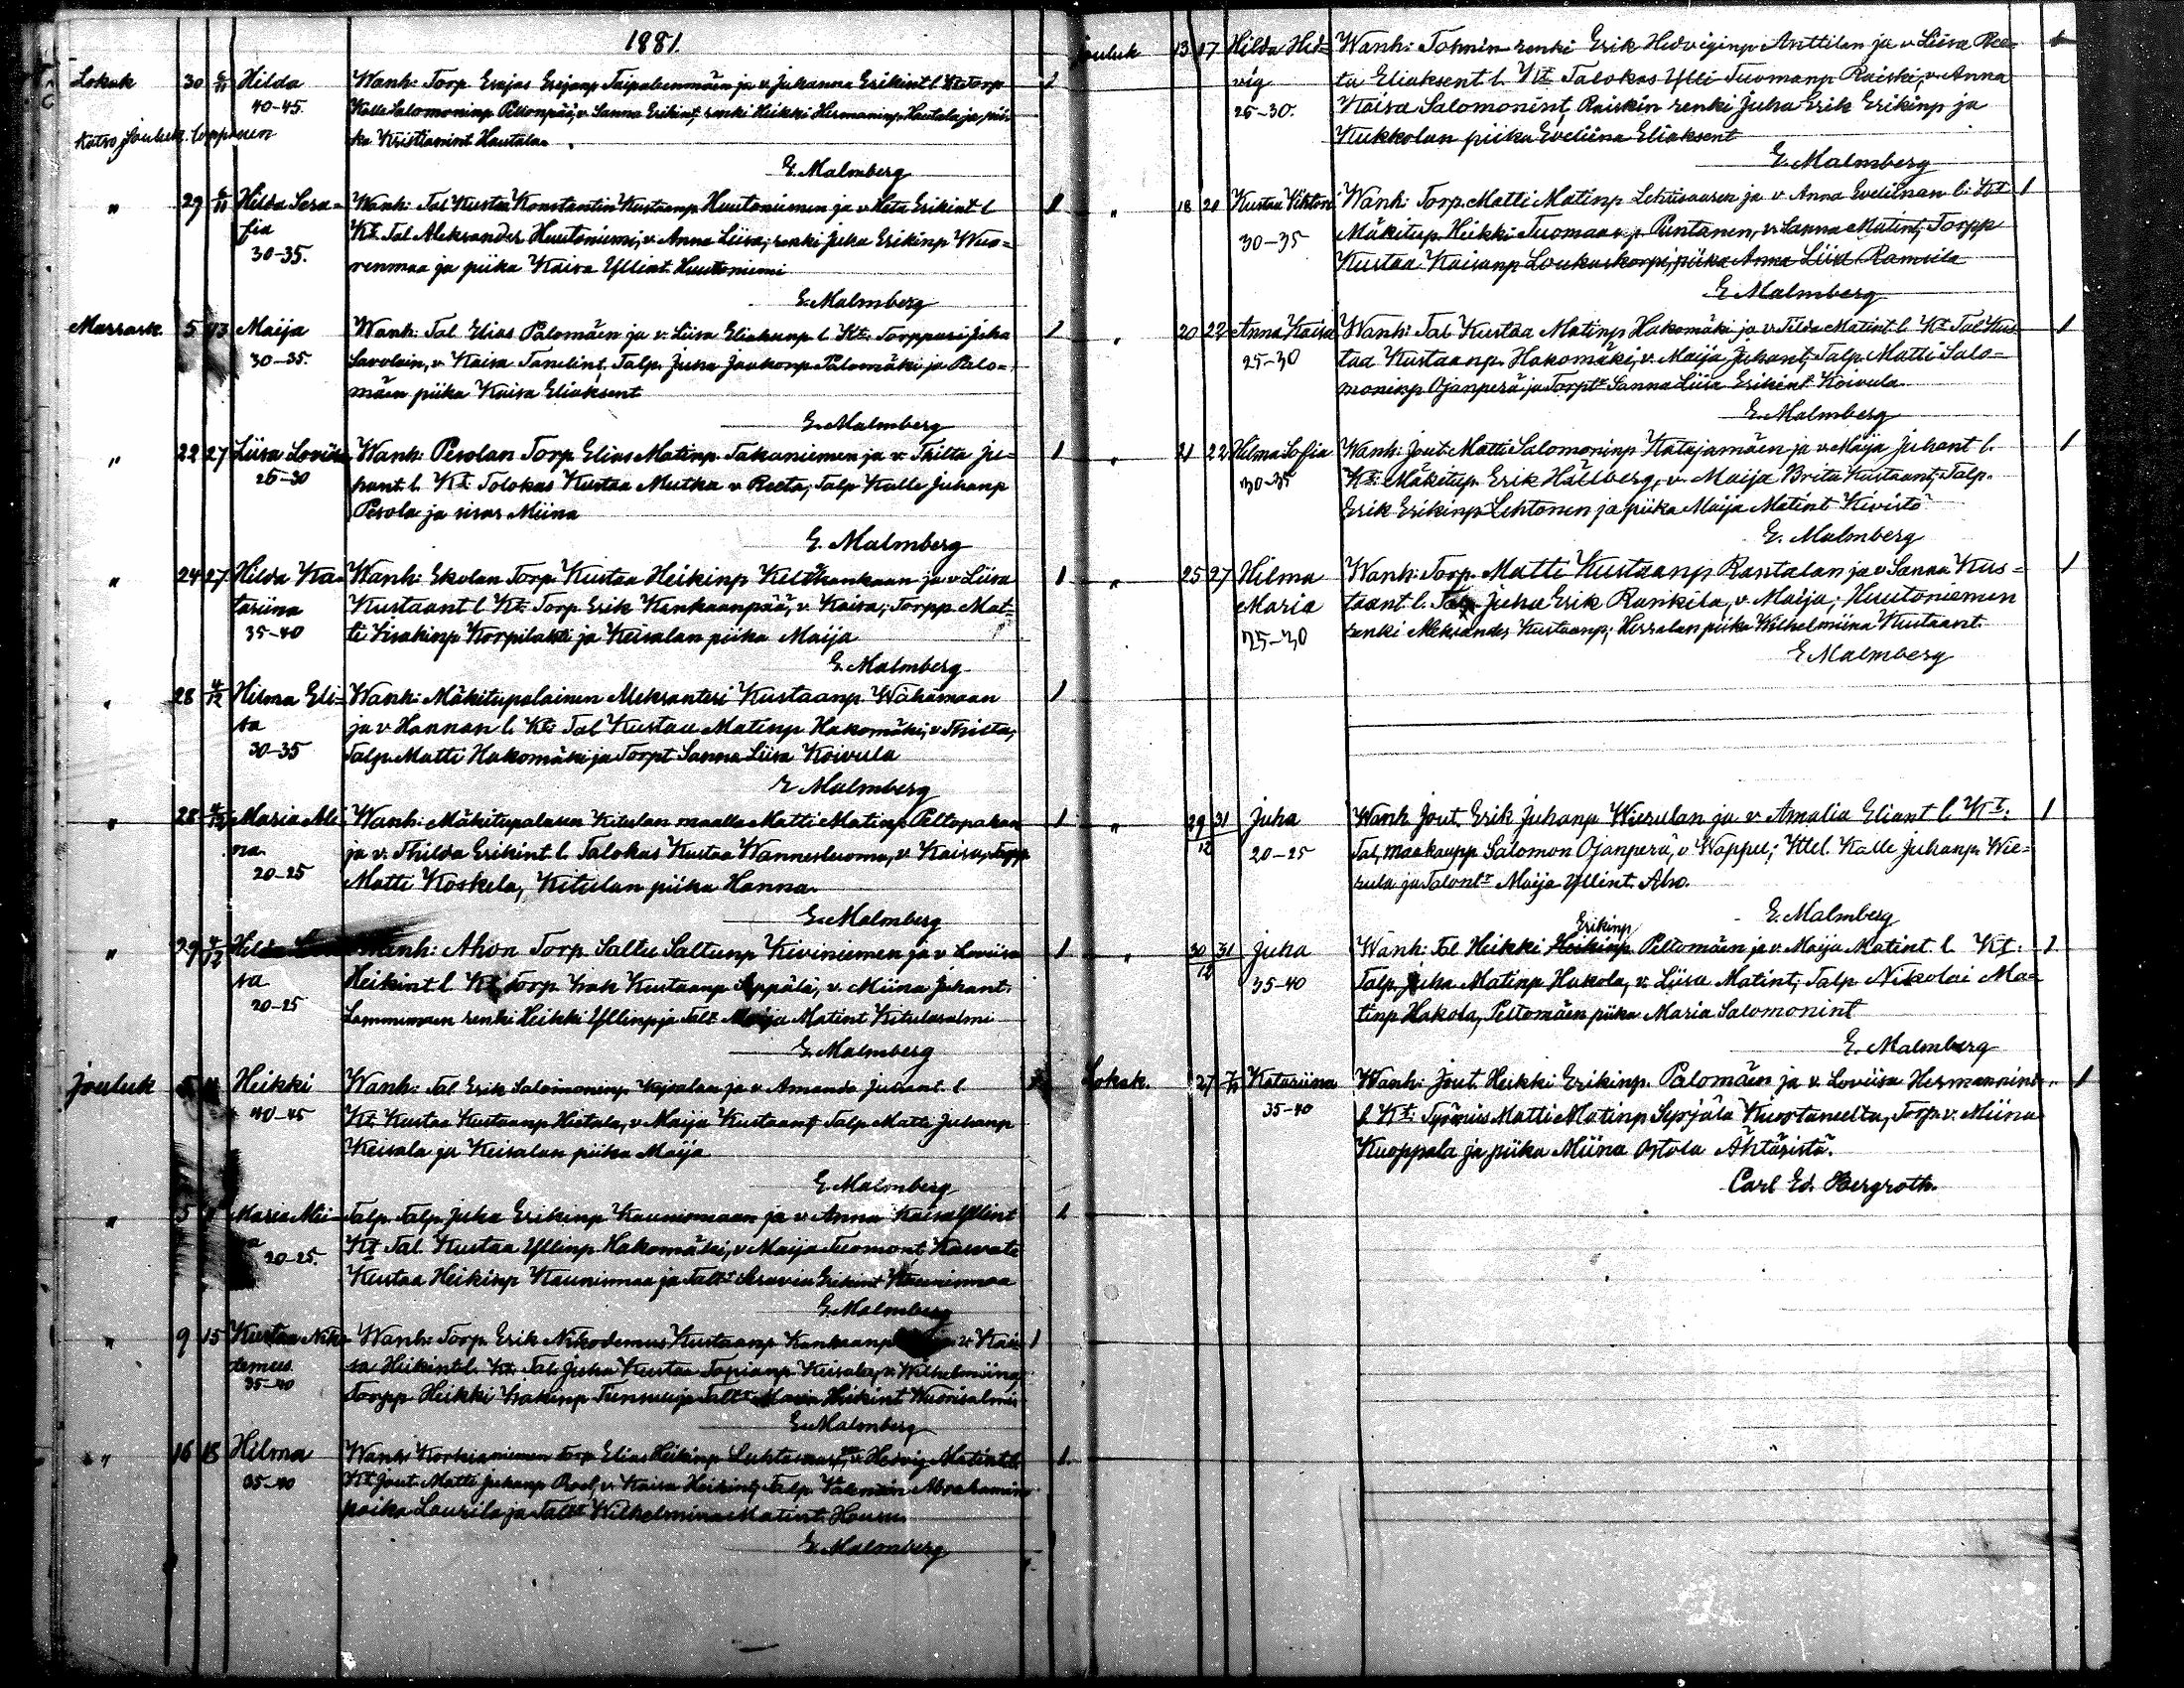 1881
Lokak 30 6/11 Hilda Wanh: Torp Erajas Erajanp Taipalenmäen ja v. Juhanna Erikint l. Kt: Torp 1
40-45. Kalle Salomoninp Peltonpää, v. Sanna Erikint, renki Heikki Hermaninp Hautala ja pii-
Katso Jouluk. loppuun ka Kristianint Hautala.
E. Malmberg
" 29 6/11 Hilda Sera- Wanh: Tal Kustaa Konstantin Kustaanp Huutoniemen ja v. Reta Erikint l 1
fia Kt. Tal Aleksander Huutoniemi, v. Anna Liisa, renki Juha Erikinp Wuo-
30-35. renmaa ja piika Kaisa Yllint Huutoniemi
E. Malmberg
Marrask. 5 13 Maija Wanh: Tal Elias Palomäen ja v. Liisa l. Kt: Torppari Juha 1
30-35. Savolain, v. Kaisa Tanelint, Talp. Juha Jaakonp Palomäki ja Palo-
mäen piika Kaisa Eliaksent
E. Malmberg
" 22 27 Liisa Loviisa Wanh: Pesolan Torp Elias Matinp Takaniemen ja v. Thilta Ju- 1
25-30 hant. l. Kt. Talokas Kustaa Mutka v Reeta, Talp Kalle Juhanp
Pesola ja sisar Miina
E. Malmberg
" 24 27 Hilda Ka- Wanh: Ekolan Torp. Kustaa Heikinp ja v Liisa 1
tariina Kustaant l Kt: Torp Erik Kankaanpää, v. Kaisa, Torpp. Mat-
35-40 ti Iisakinp Korpilahti ja Keisalan piika Maija
E. Malmberg
" 28 4/12 Hilma Eli- Wanh: Mäkitupalainen Aleksanteri Kustaanp Wähämaan 1
sa ja v Hannan l. Kt: Tal Kustaa Matinp Hakomäki, v Thilta,
30-35 Talp. Matti Hakomäki ja Torpt Sanna Liisa Koivula
E Malmberg
" 28 4/12 Maria Ali- Wanh: Mäkitupalaisen Kitulan maalla Matti Matinp Peltopakan 1
na ja v. Thilda Erikint l. Talokas Kustaa Wannesluoma, v Kaisa, Torpp
20-25 Matti Koskela, Kitulan piika Hanna.
E. Malmberg
" 29 4/12 Hilda Wanh: Ahon Torp Saltu Saltunp Kiviniemen ja v Loviisa 1
sa Heikint l Kt, Torp Isak Kustaanp v. Miina Juhant.
20-25 renki Heikki Yllinp ja Talt Maija Matint Kitulasalmi
E. Malmberg
Jouluk 5 Heikki Wanh: Tal Erik Salomoninp ja v. Amanda Juhant l
40-45 Kt. Kustaa Kustaanp Hietala, v. Maija Kustaant Talp Matti Juhanp
Keisala ja Keisalan piika Maija
E. Malmberg
" 5 Maria Mii- Talp. Talp. Juha Erikinp Kaunismaan ja v Anna Kaisa Yllint 1
a Kt Tal Kustaa Yllinp Hakomäki, v Maija Tuomont
20-25. Kustaa Heikinp Kaunismaa ja Talt Seravia Erikint Kaunismaa
E. Malmberg
" 9 15 Kustaa Niko- Wanh: Torp. Erik Nikodemus Kustaanp v. Kai- 1
demus sa Heikint l. Kt. Tal Juha Kustaa Tapianp Keisala, v. Wilhelmiina
35-40 Torpp Heikki Isakinp ja Talt Maria Heikint Wuorisalmi
E. Malmberg
" 16 18 Hilma Wanh: Korkianiemen Torp Elias Heikinp v. Hedvig Matint l 1
35-40 Kt Jout. Matti Juhanp v. Kaisa Heikint, Talp Abrahamin
poika Laurila ja Talt Wilhelmina Matint
E. Malmberg
Jouluk 13 17 Hilda Hed- Wanh: Tohnin renki Erik Hedviginp Anttilan ja v Liisa Ree- 1
vig ta Eliaksent l. Kt Talokas Ylli Tuomanp Raiski, v. Anna
25-30. Kaisa Salomonint, Raiskin renki Juha Erik Erikinp ja
Kukkolan piika Eveliina Eliaksent
E. Malmberg
" 18 20 Kustaa Vihtori Wanh: Torp. Matti Matinp ja v Anna Evelinan l. Kt 1
30-35 Mäkitup. Heikki Tuomaanp Puntanen, v. Sanna Matint, Torpp
Kustaa Kaisanp Loukaskorpi, piika Anna Liisa Ramsila
E Malmberg
" 20 22 Anna Kaisa Wanh: Tal Kustaa Matinp Hakomäki ja v. Tilda Matint l Kt Tal Kus- 1
25-30 taa Kustaanp Hakomäki, v. Maija Juhant, Talp. Matti Salo-
moninp Ojanperä ja Torptr Sanna Liisa Erikint Koivula
E. Malmberg
" 21 22 Hilma Sofia Wanh: Jout. Matti Salomoninp Katajamäen ja v Maija Juhant l. 1
30-35 Kt: Mäkitup. Erik Hällberg, v. Maija Brita Kustaant, Talp.
Erik Erikinp Lehtonen ja piika Maija Matint Kivistö
E. Malmberg
" 25 27 Hilma Wanh: Torp. Matti Kustaanp Rantalan ja v Sanna Kus- 1
Maria taant l. Juha Erik Rankila, v. Maija; Huutoniemen
25-30 renki Aleksander Kustaanp; piika Wilhelmiina Kustaant.
E Malmberg
" 29/12 31 Juha Wanh Jout. Erik Juhanp Wierulan ja v Amalia Eliant l Kt: 1
20-25 Tal, maakaupp Salomon Ojanperä, v Wappu; Ktel. Kalle Juhanp Wie-
rula ja Talontr Maija Yllint Aho.
E. Malmberg
Erikinp
" 30/12 31 Juha Wanh: Tal Heikki Heikinp Peltomäen ja v. Maija Matint l Kt: 1
35-40 Talp. Juha Matinp Hakola, v. Liisa Matint, Talp Nikolai Ma-
tinp Hakola, Peltomäen piika Maria Salomonint
E. Malmberg
Lokak. 27 Katariina Wanh: Jout. Heikki Erikinp. Palomäen ja v. Loviisa Hermannint 1
35-40 l Kt: Matti Matinp Syrjälä Kuortaneelta, Torp v. Miina
Kuoppala ja piika Miina Ostola Ähtäristä.
Carl Ed. Bergroth.